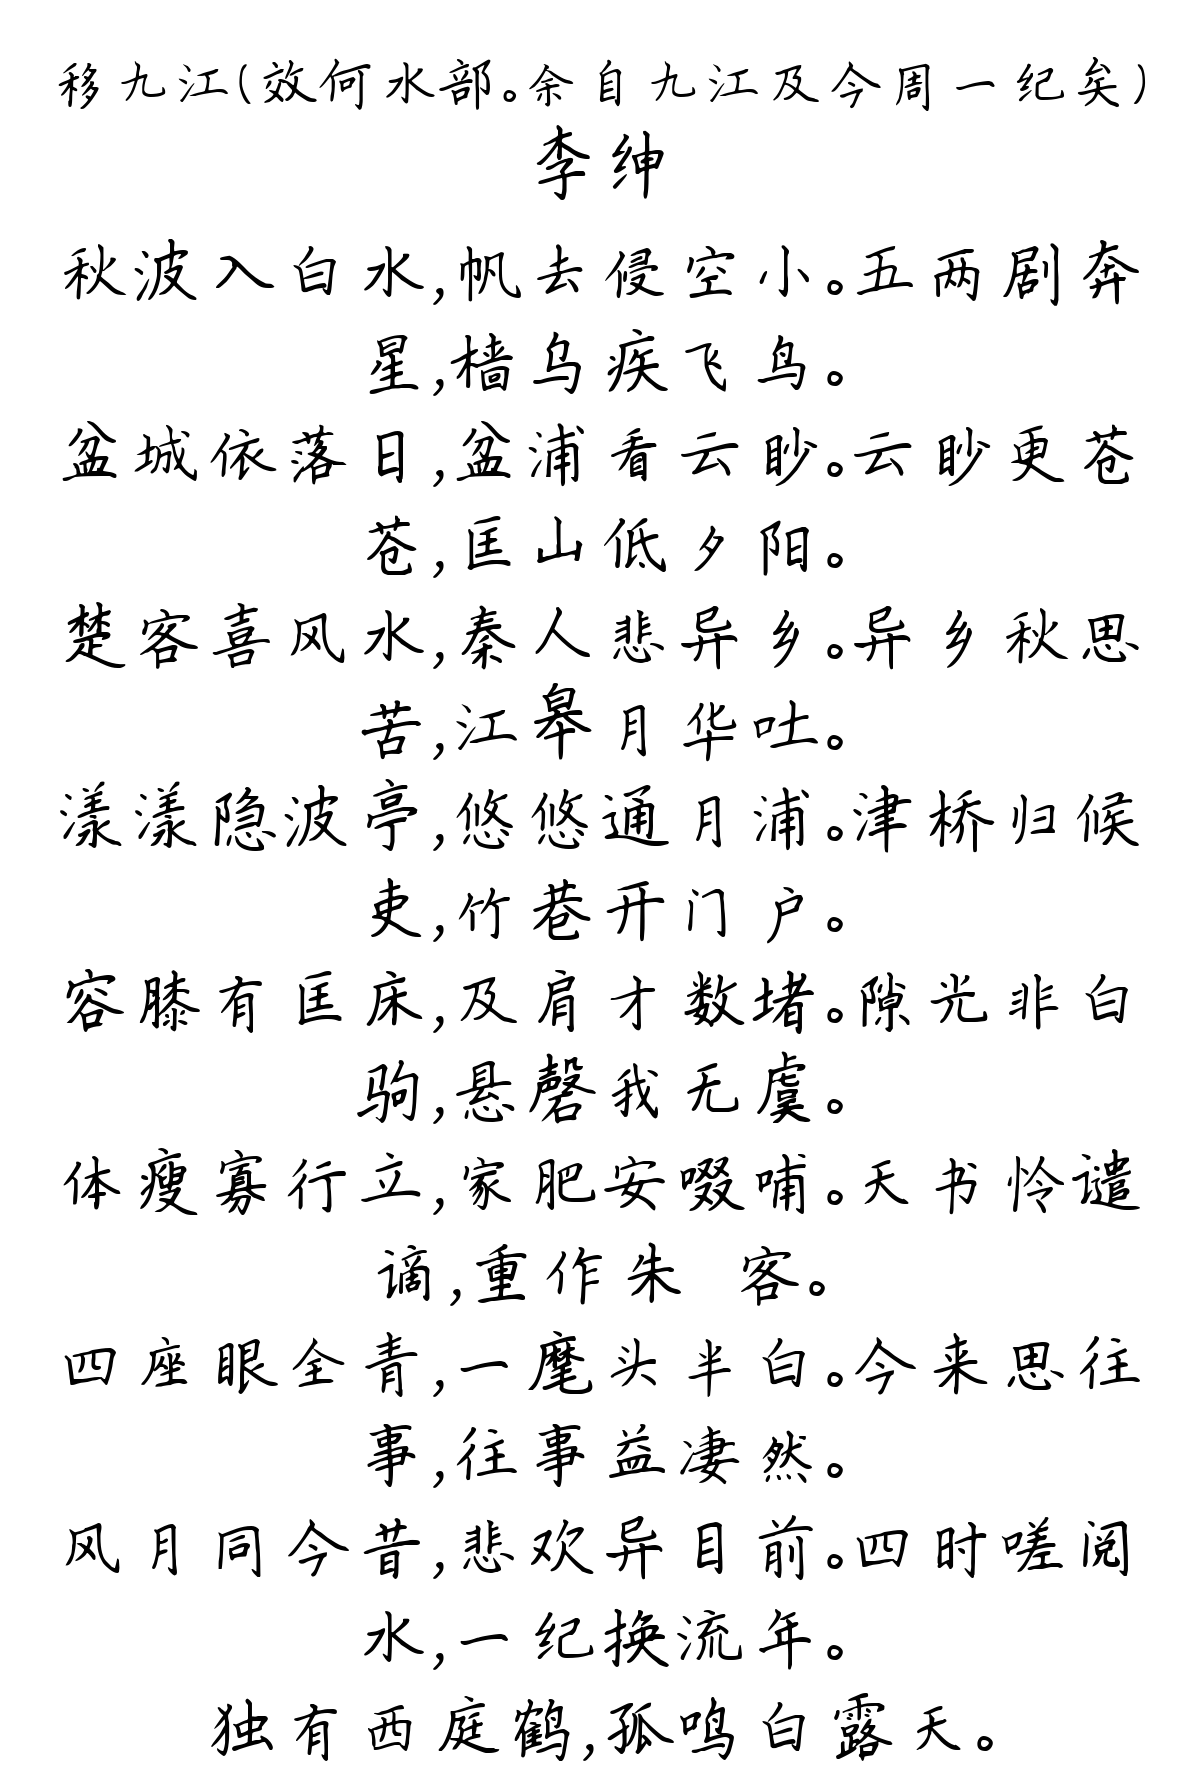 移九江(效何水部。余自九江及今周一纪矣)
李绅
秋波入白水,帆去侵空小。五两剧奔
星,樯乌疾飞鸟。
盆城依落日,盆浦看云眇。云眇更苍
苍,匡山低夕阳。
楚客喜风水,秦人悲异乡。异乡秋思
苦,江皋月华吐。
漾漾隐波亭,悠悠通月浦。津桥归候
吏,竹巷开门户。
容膝有匡床,及肩才数堵。隙光非白
驹,悬磬我无虞。
体瘦寡行立,家肥安啜哺。天书怜谴
谪,重作朱 客。
四座眼全青,一麾头半白。今来思往
事,往事益凄然。
风月同今昔,悲欢异目前。四时嗟阅
水,一纪换流年。
独有西庭鹤,孤鸣白露天。